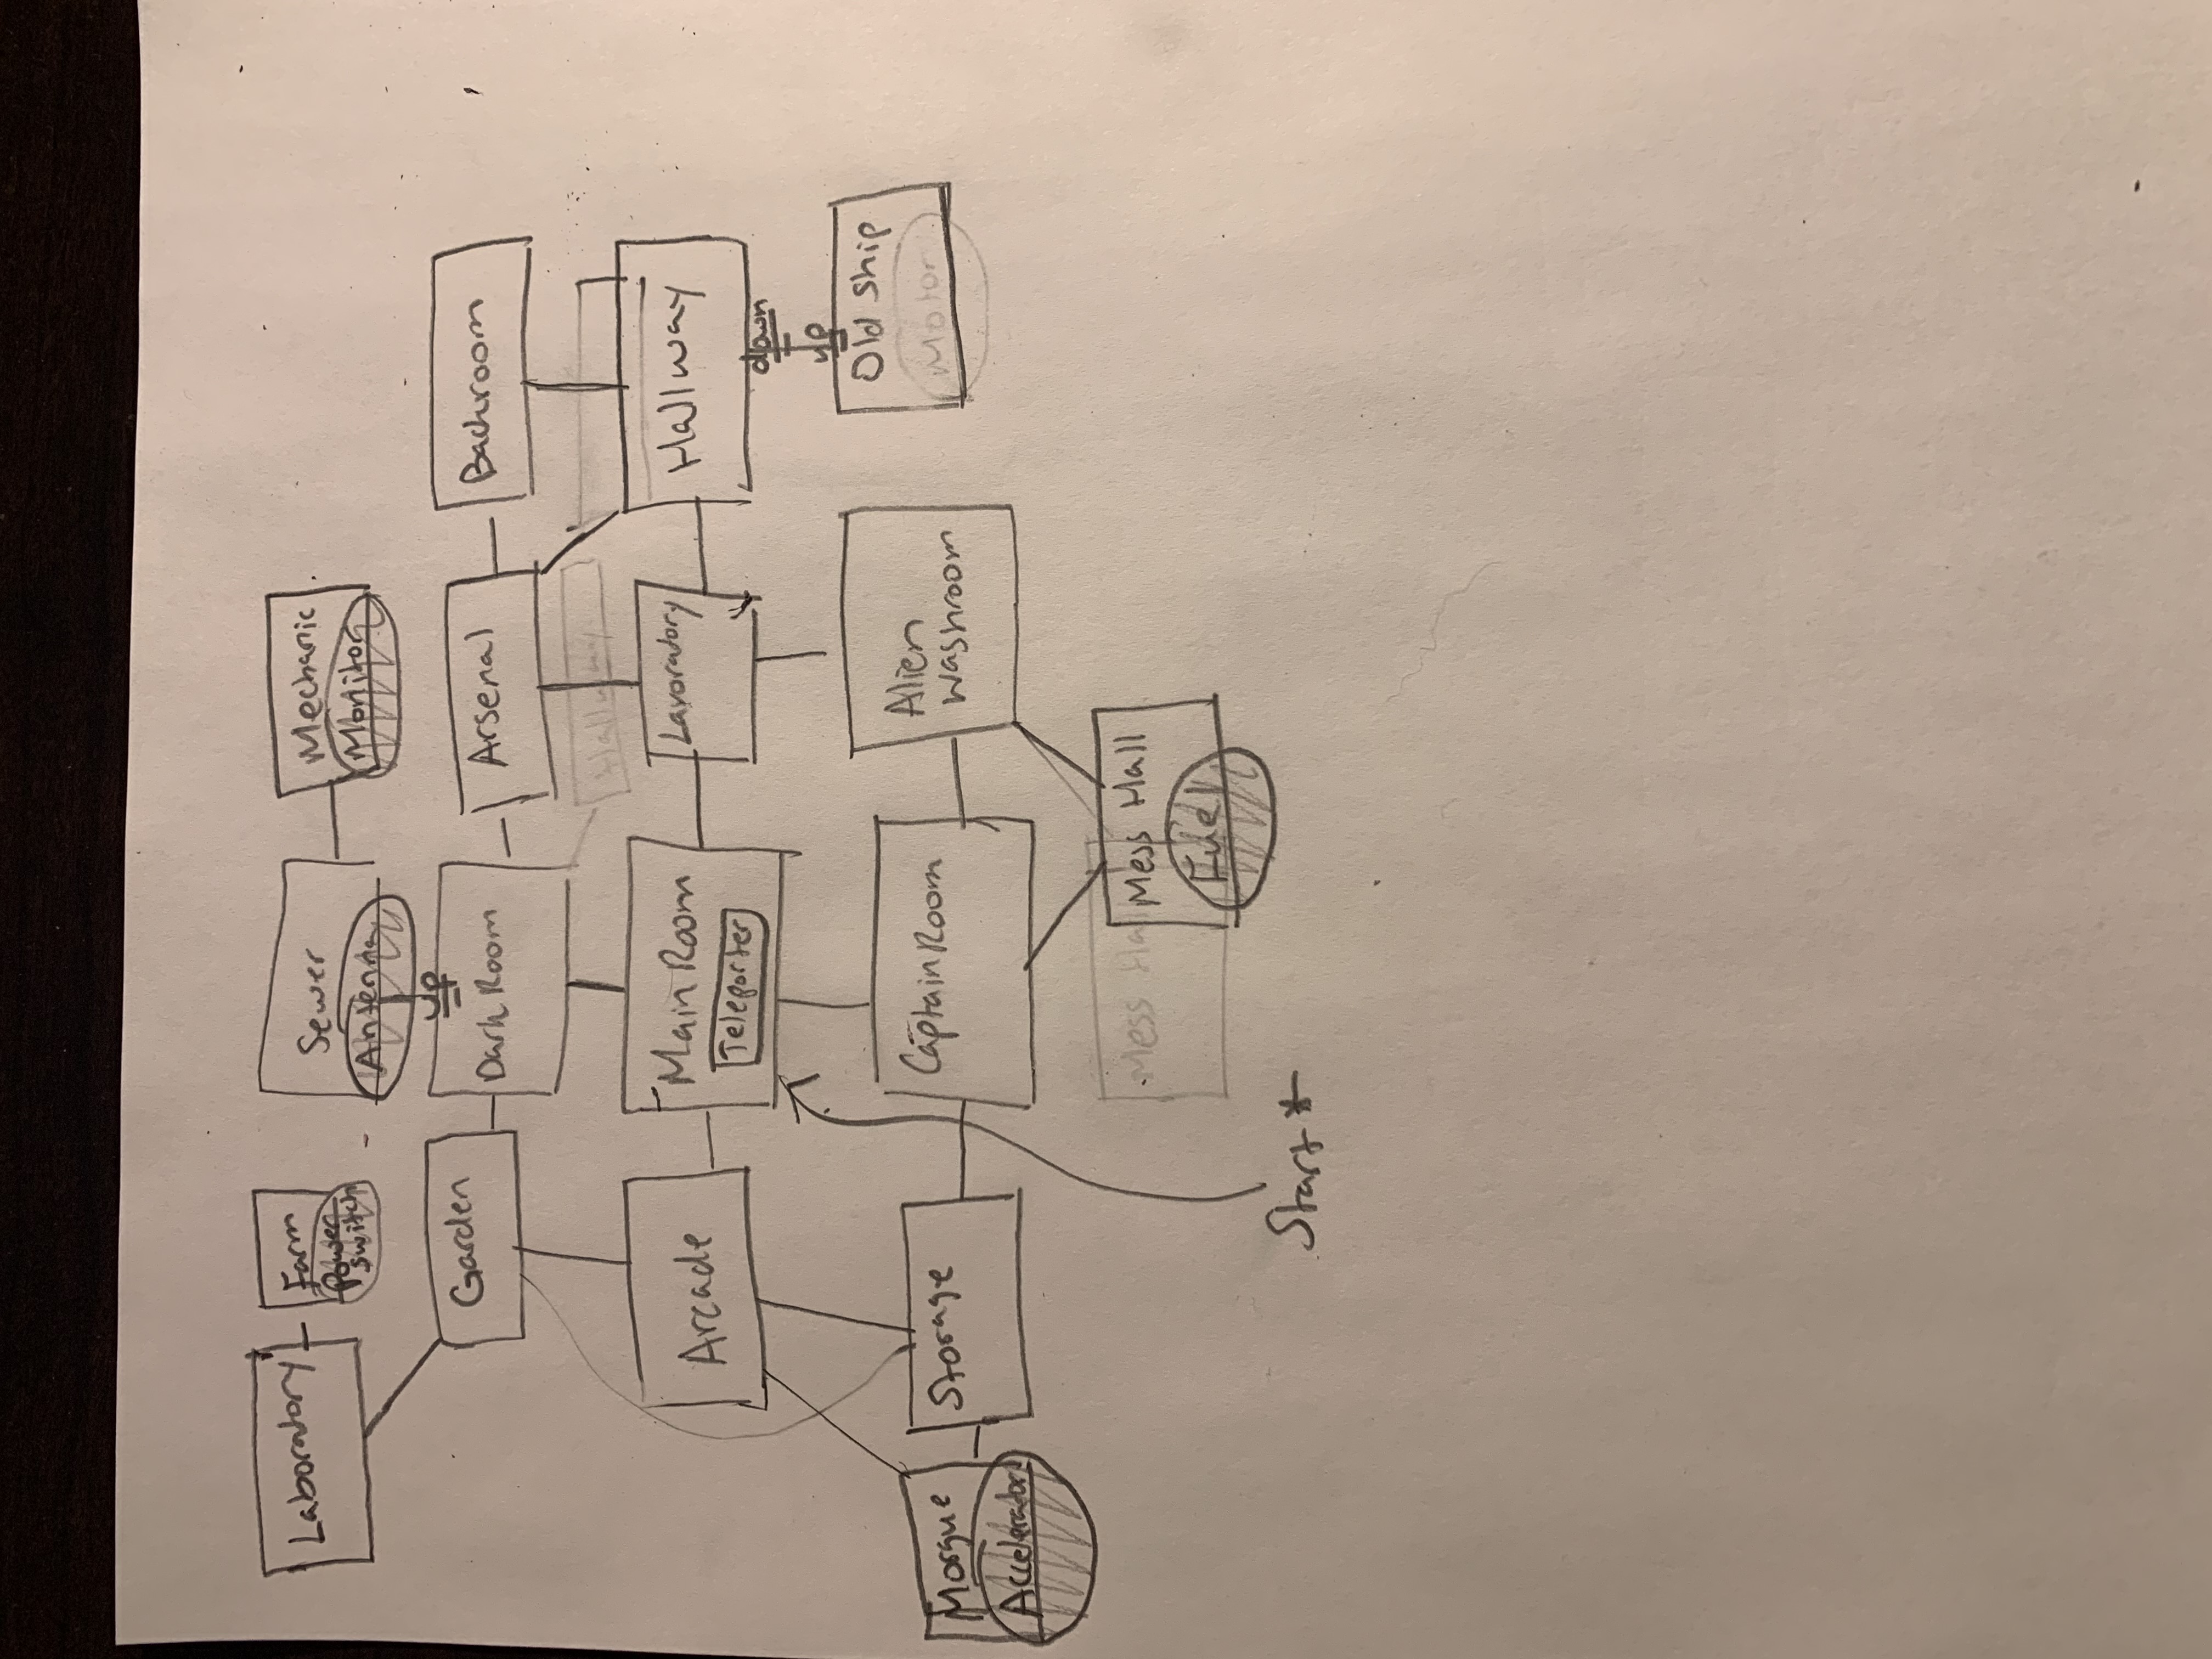 Laboratory
Farm
Power
switch
Sewer
Antenna
up
Mechanic
Monitor
Garden
Dark Room
Arsenal
Backroom
Hallway
Arcade
Main Room
Teleporter
Lavoratory
Hallway
down
up
Old Ship
Motor
Morgue
Accelerator
Storage
Captain Room
Alien
Washroom
Mess Hall
Mess Hall
Fuel
Start *